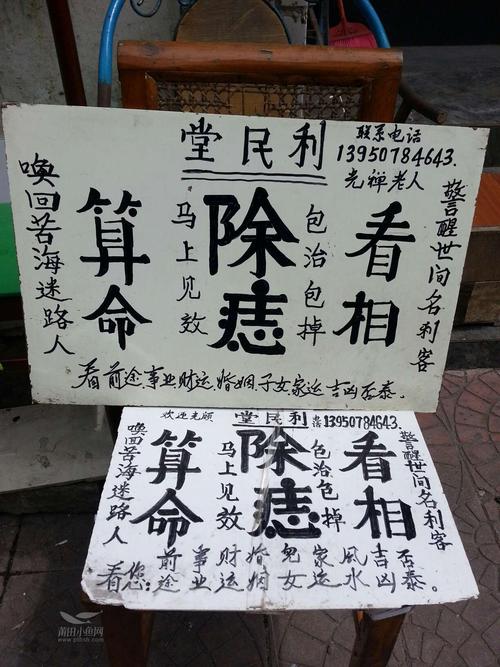 利民堂
联系电话
13950784643.
光禅老人
警醒世间名利客
看相
包治包掉
除痣
马上见效
算命
唤回苦海迷路人
看前途、事业财运、婚姻、子女家运吉凶否泰。
欢迎光顾
利民堂
电话13950784643.
警醒世间名利客
看相
包治包掉
除痣
马上见效
算命
唤回苦海迷路人
看您:前途事业财运婚姻儿女家运风水吉凶否泰。
莆田小鱼网